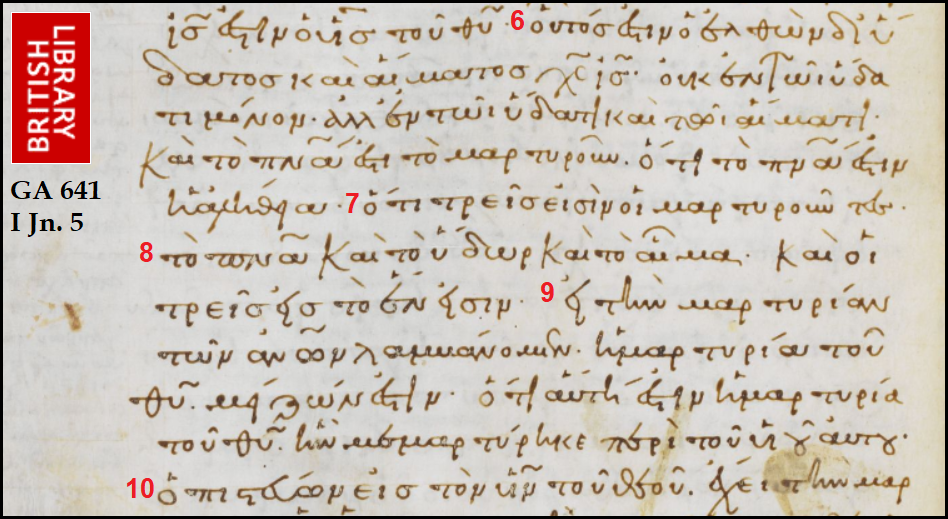 BRITISH LIBRARY
GA 641
I Jn. 5
ις ἐστὶν ὁ υις τοῦ θυ 6 οὗτός ἐστιν ὁ ἐλθὼν δι ὕ
δατος καὶ αἵματος χς ις· οὐκ ἐν τῶι ὕδα
τι μόνον· ἀλλ ἐν τῶι ὕδατι καὶ τῶι αἵματι·
Καὶ τὸ πνα ἐστι τὸ μαρτυροῦν· ὅτι τὸ πνα ἐστιν
ἡ ἀλήθεια· 7 ὅτι τρεῖς εἰσὶν οἱ μαρτυροῦντες·
8 τὸ πνα Καὶ τὸ ὕδωρ Καὶ τὸ αἷμα· Καὶ οἱ
τρεῖς εἰς τὸ ἕν εἰσιν· 9 εἰ τὴν μαρτυρίαν
τῶν ανων λαμβάνομεν· ἡ μαρτυρία τοῦ
θυ. μείζων ἐστίν· ὅτι αὕτη ἐστὶν ἡ μαρτυρία
τοῦ θυ. ἣν μεμαρτύρηκε περὶ τοῦ υἱοῦ αὐτοῦ·
10 ὁ πιστεύων εἰς τὸν υιν τοῦ θεοῦ. ἔχει τὴν μαρ